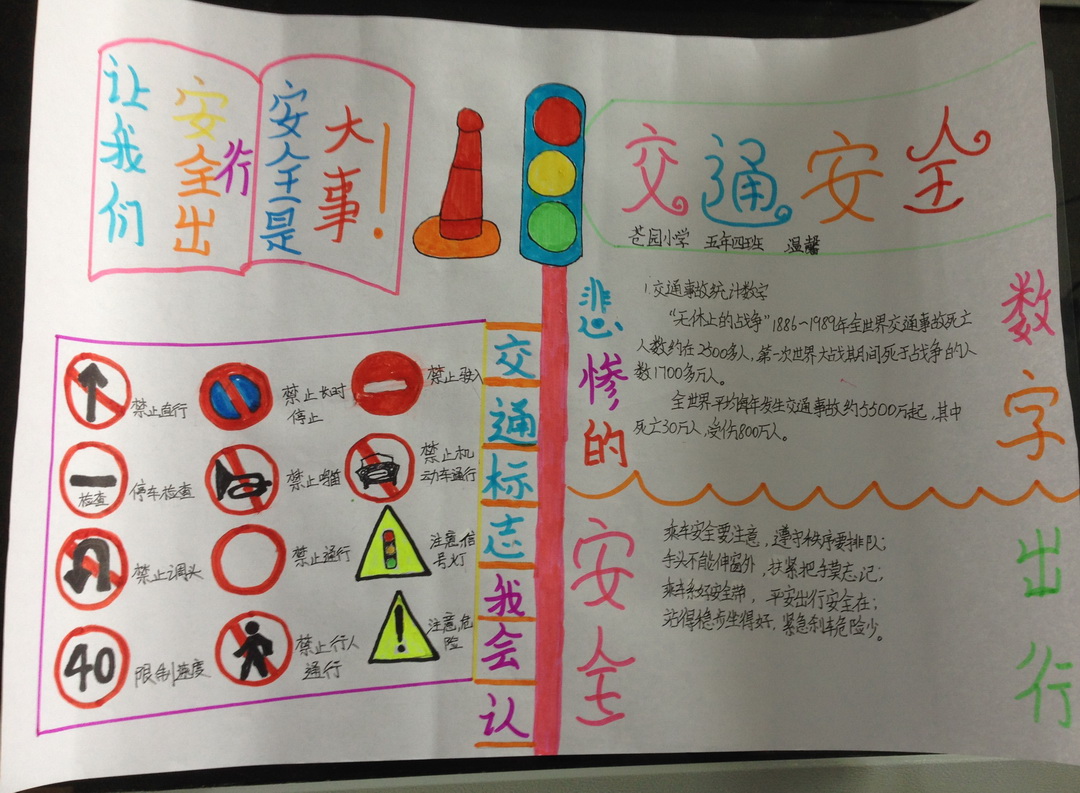 让我们
安全出
行
安全是
大事！
交通安全
苍园小学 五年四班 温馨
交通标志我会认
禁止直行
禁止长时
停止
禁止驶入
检查
停车检查
禁止鸣笛
禁止机
动车通行
禁止调头
禁止通行
注意信
号灯
40
限制速度
禁止行人
通行
注意危
险
悲惨的
数字
1.交通事故统计数字
“无休止的战争”1886～1989年全世界交通事故死亡
人数约在2500多人，第一次世界大战期间死于战争的人
数1700多万人。
全世界平均每年发生交通事故约5500万起，其中
死亡30万人，受伤800万人。
安全
出行
乘车安全要注意，遵守秩序要排队；
手头不能伸窗外，扶紧把手莫忘记；
乘车系好安全带，平安出行安全在；
站得稳步坐得好，紧急刹车危险少。